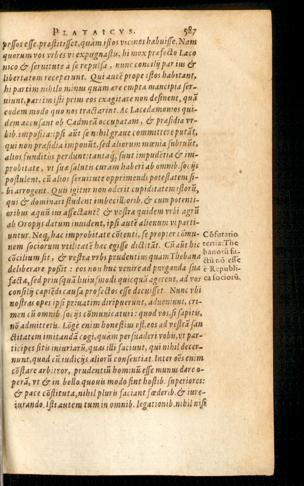 PLATAICVS. 587
pessos esse, præstitisset, quàm istos vicinos habuisse. Nam
quorum vos vrbes vi expugnastis: hi mox profecto Laco
nico & seruitute a se repulsa, nunc concilij par ius &
libertatem receperunt. Qui autē prope istos habitant,
hi partim nihilo minus quam ære empta mancipia ser-
uiunt, partim isti prius eos exagitare non desinent, quā
eodem modo quo nos tractarint. Ac Lacedæmonios qui-
dem accusant ob Cadmeā occupatam, & præsidia vr-
bib. imposita: ipsi aūt se nihil graue committere putāt,
qui non præsidia imponūt, sed aliorum mœnia subruūt,
alios funditus perdunt: tantaq́, sunt impudētia & im-
probitate, vt suæ salutis curam haberi ab omnib. socijs
postulent, cū alios seruitute opprimendi potestatem si-
bi arrogent. Quis igitur non oderit cupiditatem istorū,
qui & dominari student imbecillorib. & cum potenti-
oribus æquū ius affectant? & vestrā quidem vrbi agrū
ab Oropijs datum inuident, ipsi autē alienum vi parti-
untur. Neq, hac improbitate cōtenti, se propter cōmu-
nem sociorum vtilitatē hæc egisse dictitāt. Cū aūt hic
cōcilium sit, & vestra vrbs prudentius quam Thebana
deliberare possit: eos non huc venire ad purganda sua
facta, sed priusquā huiusmodi quicquā agerent, ad vos
consilij capiēdi causa profectos esse decuisset. Nunc vbi
nostras opes ipsi priuatim diripuerunt, adueniunt, cri-
men cū omnib. socijs cōmunicaturi: quod vos, si sapitis,
nō admittetis. Lōgè enim honestius est, eos ad vestrā san
ctitatem imitandā cogi, quàm persuaderi vobis, vt par-
ticipes sitis iniuriarū, quas illi faciunt, qui nihil decer-
nunt, quod cū iudicijs aliorū consentiat. Inter oēs enim
cōstare arbitror, prudentū hominū esse munus dare op-
erā, vt & in bello, quouis modo sint hostib. superiores:
& pace cōstituta, nihil pluris faciant fœderib. & iure-
iurando. Isti autem tum in omnib. legationib. nihil nisi
Cōfutatio
teria: The
banorū fa-
ctū nō esse
è Republi-
ca sociorū.